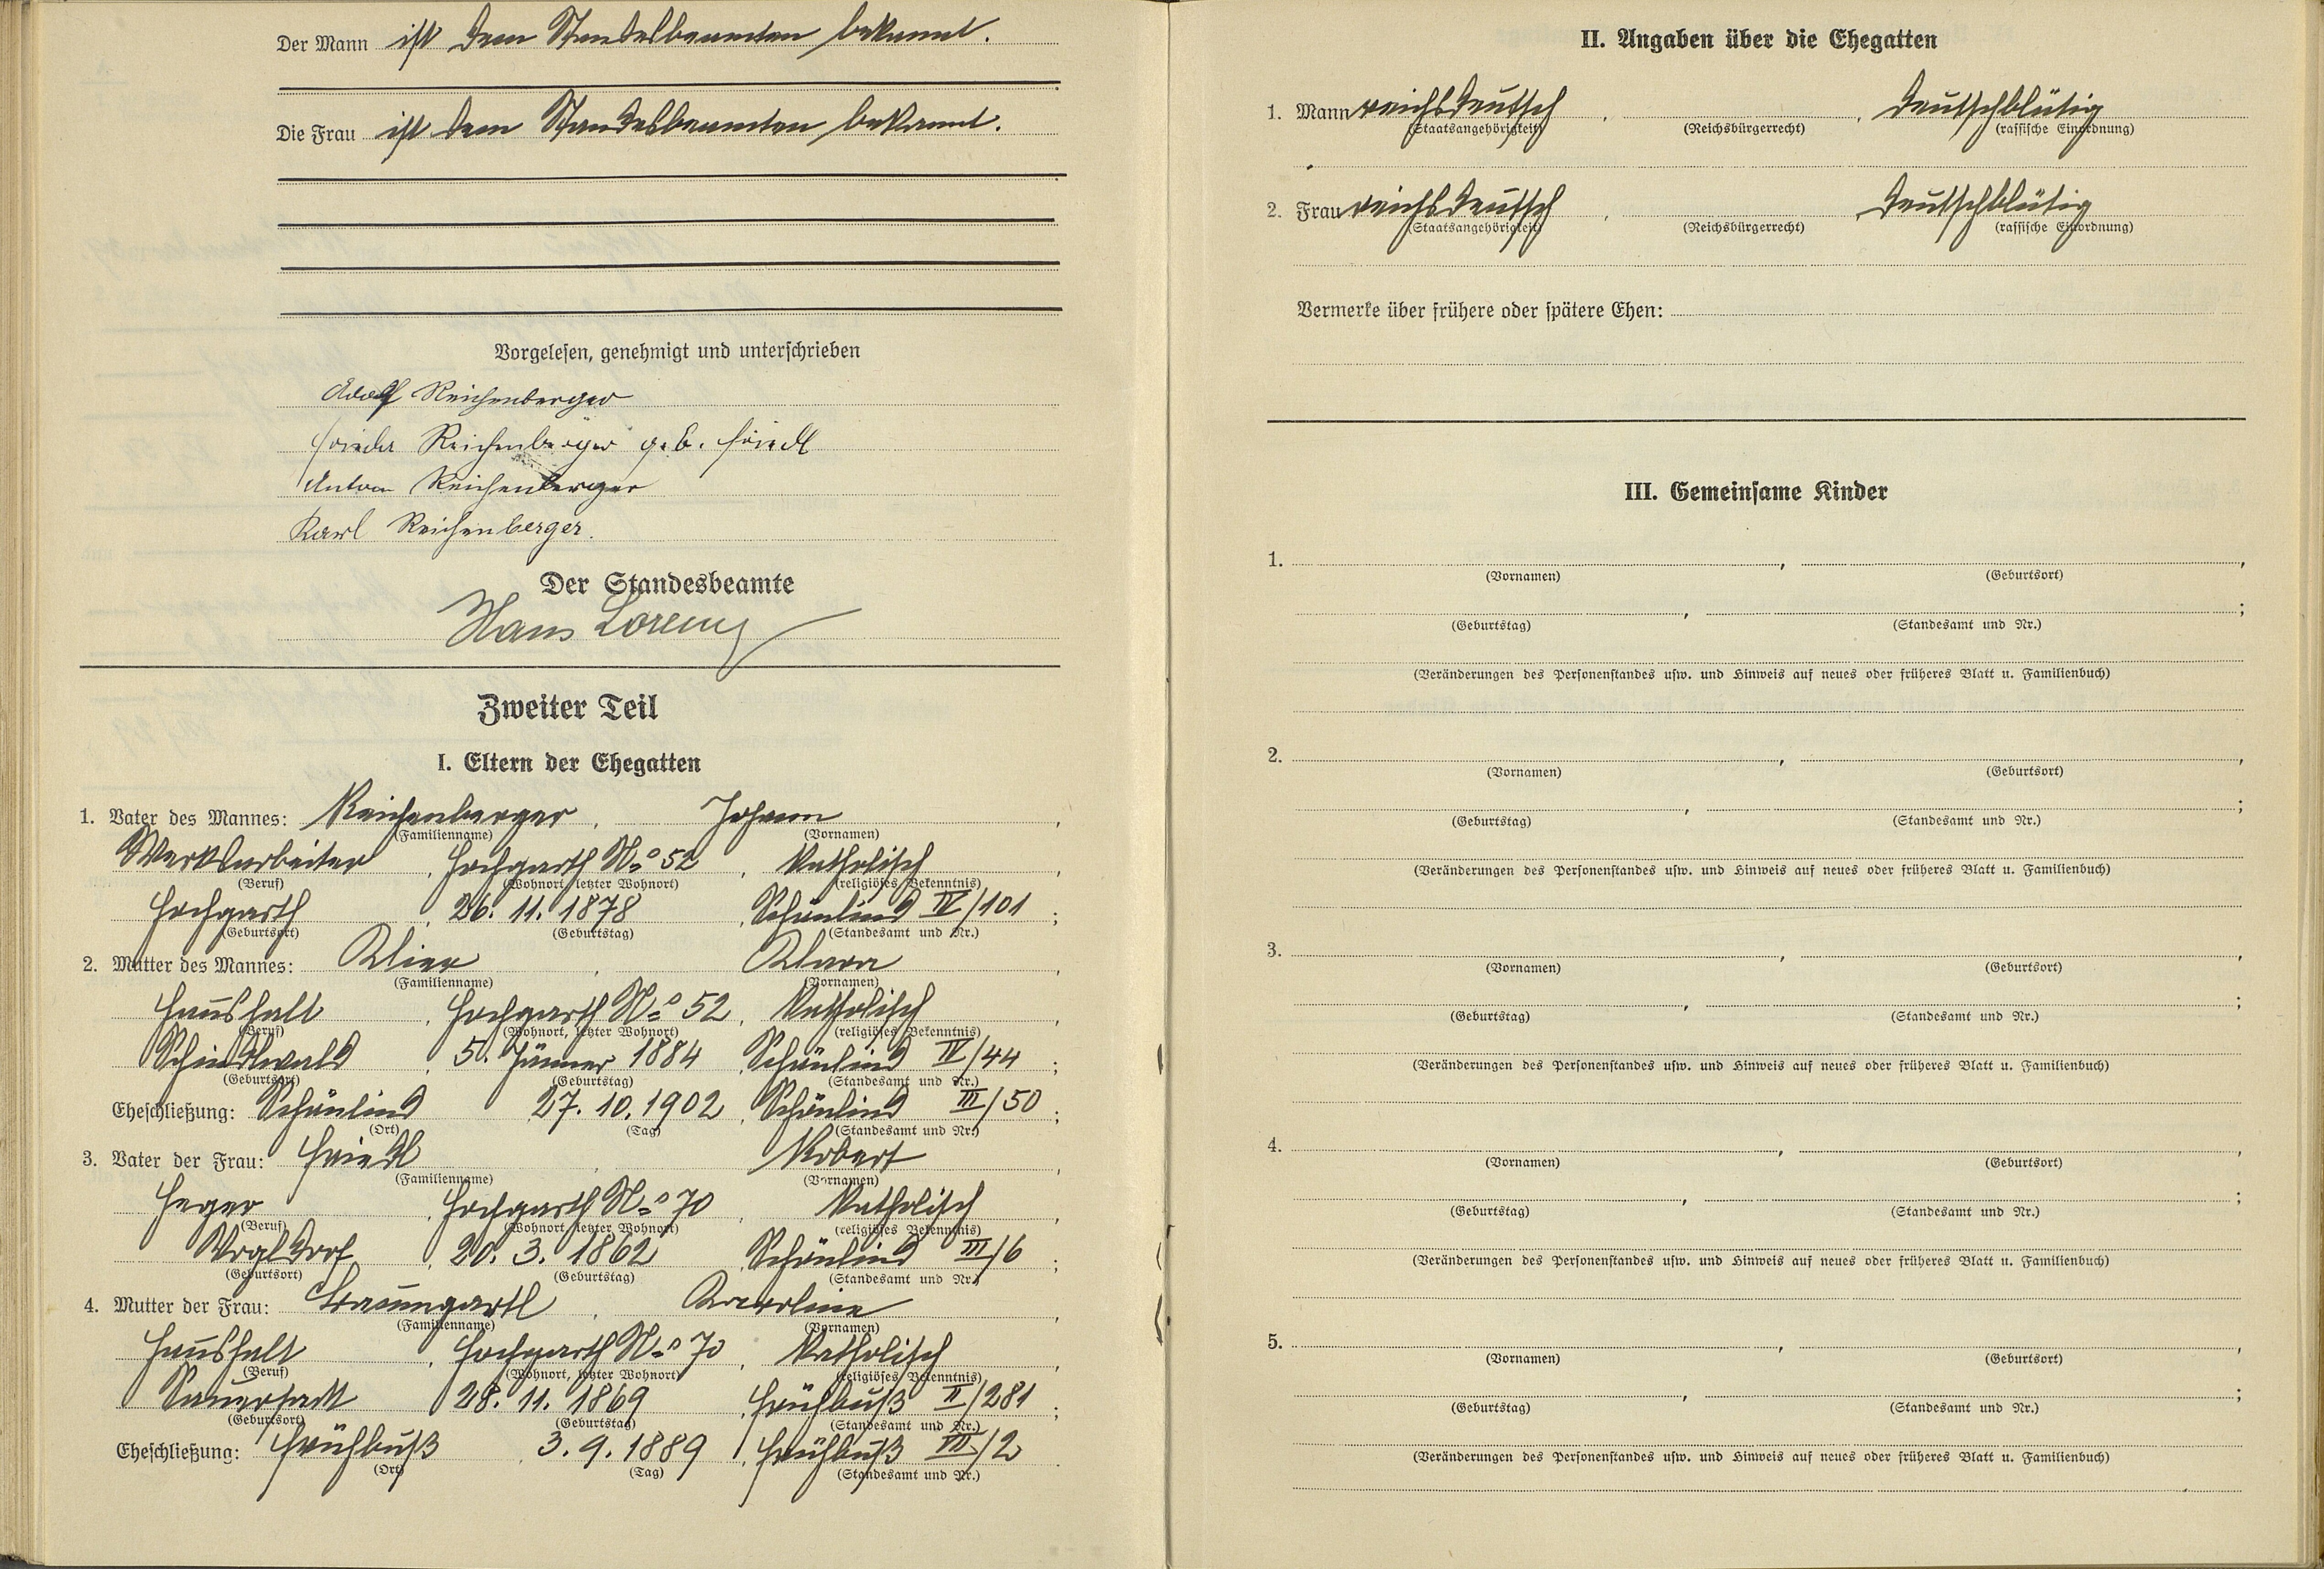 Der Mann ist dem Standesbeamten bekannt.
Die Frau ist dem Standesbeamten bekannt.
Vorgelesen, genehmigt und unterschrieben
Adolf Reichenberger
Frieda Reichenberger geb. Friedl
Anton Reichenberger
Karl Reichenberger.
Der Standesbeamte
Hans Lorenz
Zweiter Teil
I. Eltern der Ehegatten
1. Vater des Mannes: Reichenberger, Johann,
(Familienname) (Vornamen)
Werksarbeiter, Hochgarth No 52, katholisch,
(Beruf) (Wohnort, letzter Wohnort) (religiöses Bekenntnis)
Hochgarth, 26. 11. 1878, Schönlind IV/101;
(Geburtsort) (Geburtstag) (Standesamt und Nr.)
2. Mutter des Mannes: Klier, Klara,
(Familienname) (Vornamen)
Haushalt, Hochgarth No 52, katholisch,
(Beruf) (Wohnort, letzter Wohnort) (religiöses Bekenntnis)
Schindlwald, 5. Jänner 1884, Schönlind IV/44;
(Geburtsort) (Geburtstag) (Standesamt und Nr.)
Eheschließung: Schönlind, 27. 10. 1902, Schönlind III/50;
(Ort) (Tag) (Standesamt und Nr.)
3. Vater der Frau: Friedl, Robert,
(Familienname) (Vornamen)
Heger, Hochgarth No 70, katholisch,
(Beruf) (Wohnort, letzter Wohnort) (religiöses Bekenntnis)
Vogldorf, 20. 3. 1862, Schönlind III/6;
(Geburtsort) (Geburtstag) (Standesamt und Nr.)
4. Mutter der Frau: Baumgartl, Karoline,
(Familienname) (Vornamen)
Haushalt, Hochgarth No 70, katholisch,
(Beruf) (Wohnort, letzter Wohnort) (religiöses Bekenntnis)
28. 11. 1869, Frühbuß II/281;
(Geburtsort) (Geburtstag) (Standesamt und Nr.)
Eheschließung: Frühbuß, 3. 9. 1889, Frühbuß VII/2.
(Ort) (Tag) (Standesamt und Nr.)
II. Angaben über die Ehegatten
1. Mann reichsdeutsch, , deutschblütig
(Staatsangehörigkeit) (Reichsbürgerrecht) (rassische Einordnung)
2. Frau reichsdeutsch, , deutschblütig
(Staatsangehörigkeit) (Reichsbürgerrecht) (rassische Einordnung)
Vermerke über frühere oder spätere Ehen:
III. Gemeinsame Kinder
1. , ,
(Vornamen) (Geburtsort)
, ;
(Geburtstag) (Standesamt und Nr.)
(Veränderungen des Personenstandes usw. und Hinweis auf neues oder früheres Blatt u. Familienbuch)
2. , ,
(Vornamen) (Geburtsort)
, ;
(Geburtstag) (Standesamt und Nr.)
(Veränderungen des Personenstandes usw. und Hinweis auf neues oder früheres Blatt u. Familienbuch)
3. , ,
(Vornamen) (Geburtsort)
, ;
(Geburtstag) (Standesamt und Nr.)
(Veränderungen des Personenstandes usw. und Hinweis auf neues oder früheres Blatt u. Familienbuch)
4. , ,
(Vornamen) (Geburtsort)
, ;
(Geburtstag) (Standesamt und Nr.)
(Veränderungen des Personenstandes usw. und Hinweis auf neues oder früheres Blatt u. Familienbuch)
5. , ,
(Vornamen) (Geburtsort)
, ;
(Geburtstag) (Standesamt und Nr.)
(Veränderungen des Personenstandes usw. und Hinweis auf neues oder früheres Blatt u. Familienbuch)